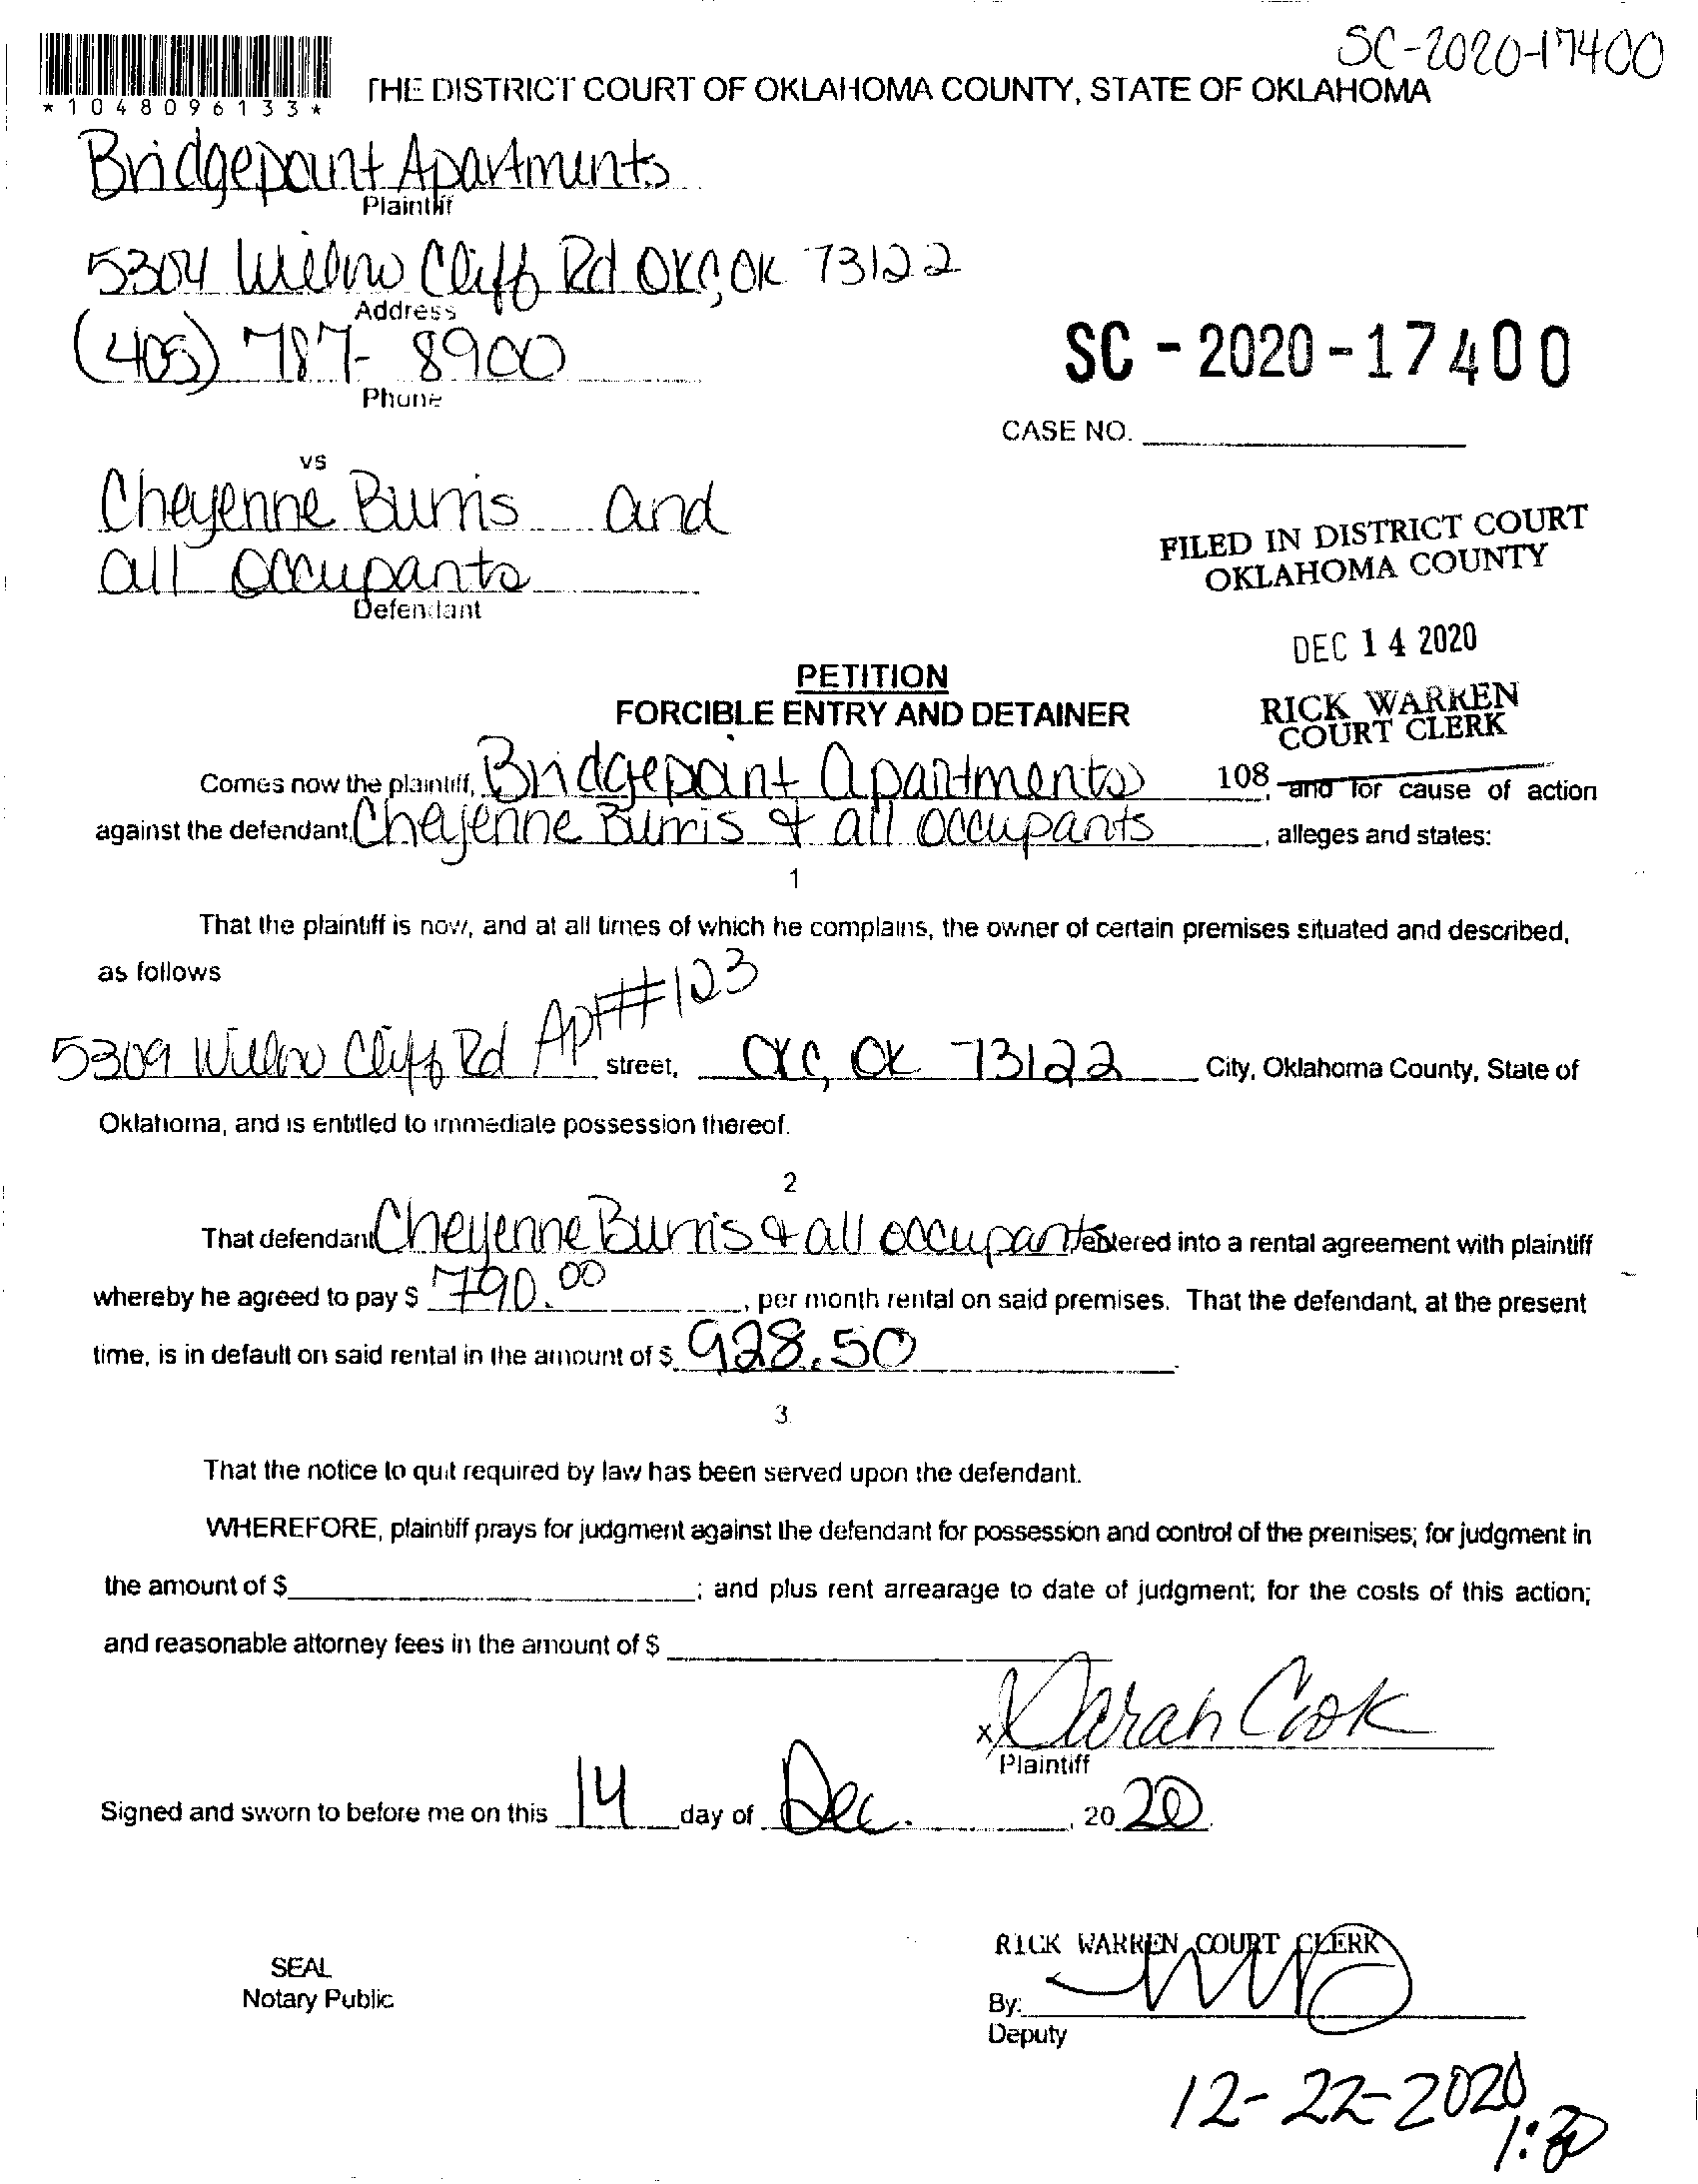 SC-2020-17400
*1048096133*
THE DISTRICT COURT OF OKLAHOMA COUNTY, STATE OF OKLAHOMA
Bridgepoint Apartments
Plaintiff
5304 Willow Cliff Rd OKC, OK 73122
Address
(405) 787-8900
Phone
SC-2020-17400
CASE NO.
vs
Cheyenne Burris and
all occupants
Defendant
FILED IN DISTRICT COURT
OKLAHOMA COUNTY
DEC 14 2020
RICK WARREN
COURT CLERK
108
PETITION
FORCIBLE ENTRY AND DETAINER
Comes now the plaintiff, Bridgepoint Apartments, and for cause of action
against the defendant, Cheyenne Burris & all occupants, alleges and states:
1
That the plaintiff is now, and at all times of which he complains, the owner of certain premises situated and described,
as follows
5309 Willow Cliff Rd Apt#123 street, OKC, OK 73122 City, Oklahoma County, State of
Oklahoma, and is entitled to immediate possession thereof.
2
That defendant Cheyenne Burris & all occupants entered into a rental agreement with plaintiff
whereby he agreed to pay $ 790.00, per month rental on said premises. That the defendant, at the present
time, is in default on said rental in the amount of $ 928.50.
3
That the notice to quit required by law has been served upon the defendant.
WHEREFORE, plaintiff prays for judgment against the defendant for possession and control of the premises; for judgment in
the amount of $ ; and plus rent arrearage to date of judgment; for the costs of this action;
and reasonable attorney fees in the amount of $
x Sarah Cook
Plaintiff
Signed and sworn to before me on this 14 day of Dec., 2020.
SEAL
Notary Public
RICK WARREN COURT CLERK
By:
Deputy
12-22-2020